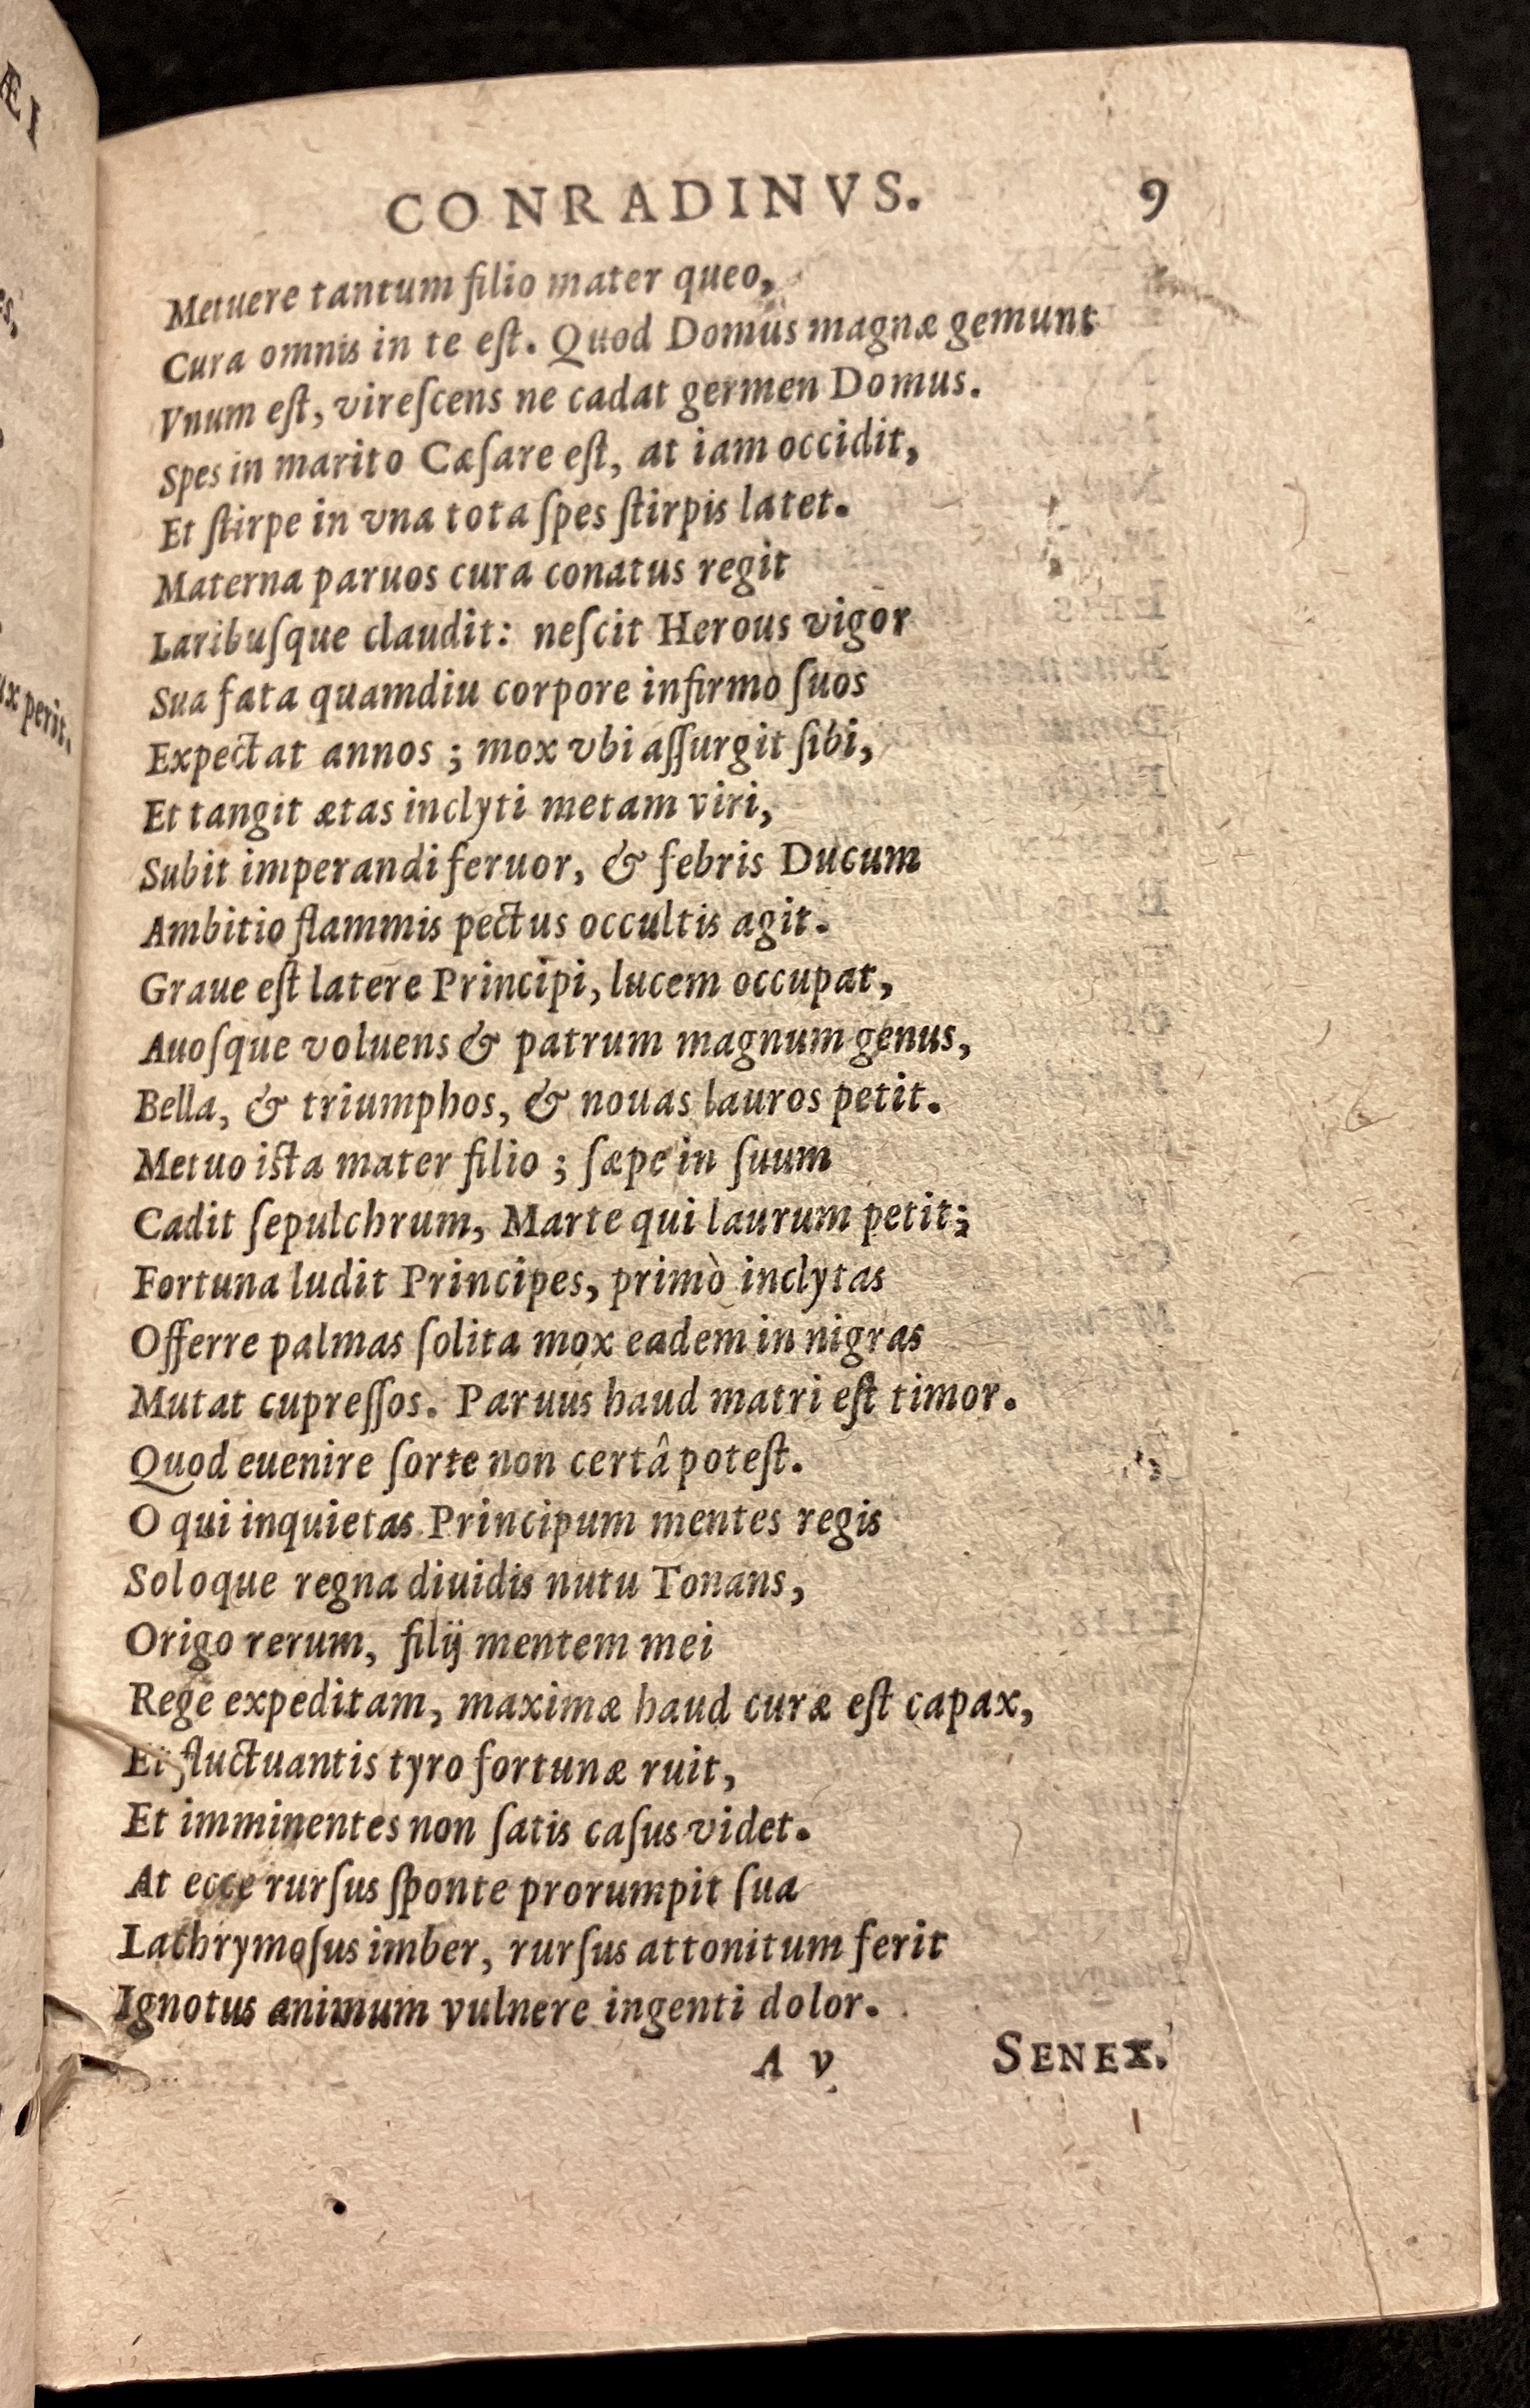 ÆI
es,
ux perit.
CONRADINVS. 9
Metuere tantum filio mater queo,
Cura omnis in te eſt. Quod Domus magnæ gemunt
Vnum eſt, vireſcens ne cadat germen Domus.
Spes in marito Cæſare eſt, at iam occidit,
Et ſtirpe in vna tota ſpes ſtirpis latet.
Materna paruos cura conatus regit
Laribuſque claudit: neſcit Herous vigor
Sua fata quamdiu corpore infirmo ſuos
Expectat annos ; mox vbi aſſurgit ſibi,
Et tangit ætas inclyti metam viri,
Subit imperandi feruor, & febris Ducum
Ambitio flammis pectus occultis agit.
Graue eſt latere Principi, lucem occupat,
Auoſque voluens & patrum magnum genus,
Bella, & triumphos, & nouas lauros petit.
Metuo iſta mater filio ; ſæpe in ſuum
Cadit ſepulchrum, Marte qui laurum petit;
Fortuna ludit Principes, primò inclytas
Offerre palmas ſolita mox eadem in nigras
Mutat cupreſſos. Paruus haud matri eſt timor.
Quod euenire ſorte non certâ poteſt.
O qui inquietas Principum mentes regis
Soloque regna diuidis nutu Tonans,
Origo rerum, filij mentem mei
Rege expeditam, maximæ haud curæ eſt capax,
Et fluctuantis tyro fortunæ ruit,
Et imminentes non ſatis caſus videt.
At ecce rurſus ſponte prorumpit ſua
Lachrymoſus imber, rurſus attonitum ferit
Ignotus animum vulnere ingenti dolor.
A v SENEX.